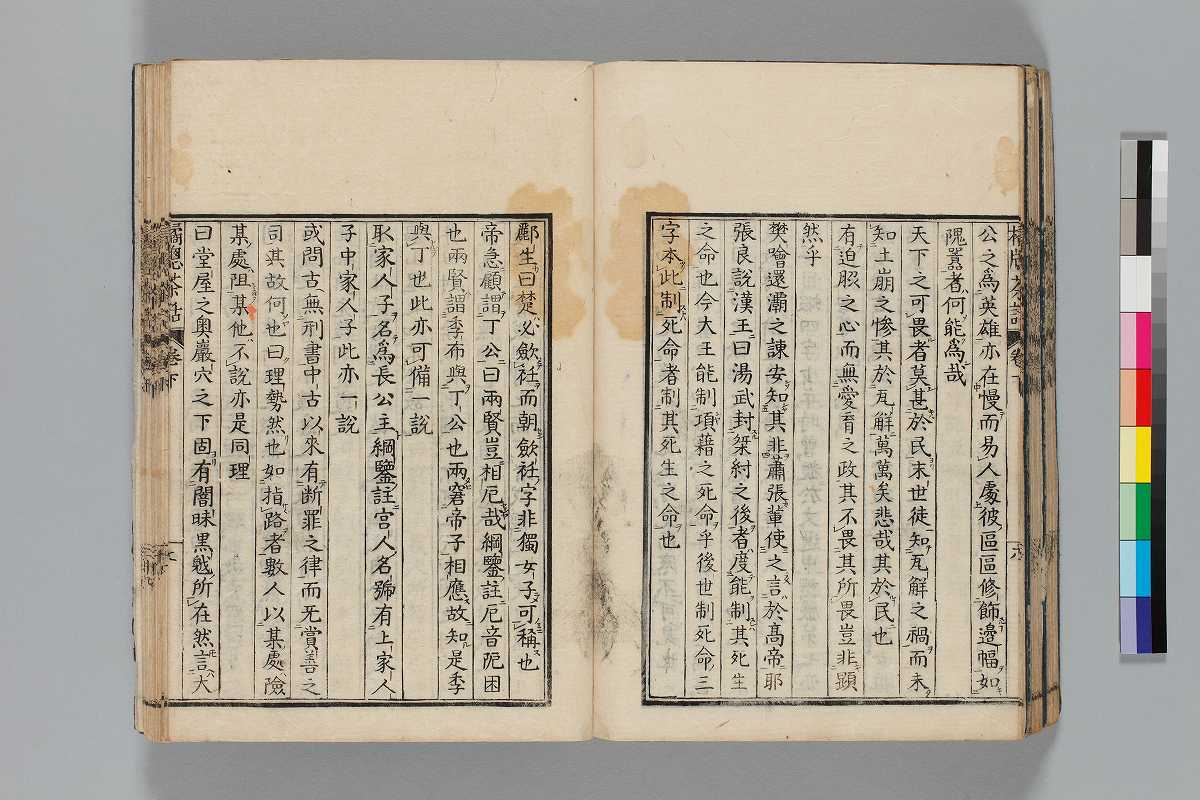 公之爲英雄亦在慢而易人處彼區區修飾邊幅如
隗囂者何能爲哉
天下之可畏者莫甚於民末世徒知瓦解之禍而未
知土崩之慘其於瓦解萬萬矣悲哉其於民也
有迫脅之心而無愛育之政其不畏其所畏豈非顕
然乎
樊噲還灞之諫安知其非蕭張輩使之言於高帝耶
張良說漢王曰湯武封桀紂之後者度能制其死生
之命也今大王能制項藉之死命乎後世制死命三
字本此制死命者制其死生之命也
酈生曰楚必歛衽而朝歛衽字非獨女子可稱也
帝急顧謂丁公曰兩賢豈相厄哉綱鑒註厄音阨困
也兩賢謂季布與丁公也兩窘帝子相應故知是季
與丁也此亦可備一說
取家人子名爲長公主綱鑒註宮人名號有上家人
子中家人子此亦一說
或問古無刑書中古以來有断罪之律而无賞善之
司其故何也曰理勢然也如指路者數人以某處險
某處阻某他不說亦是同理
曰堂屋之奥巖穴之下固有闇昧黒㦸所在然言大
茶話 卷下